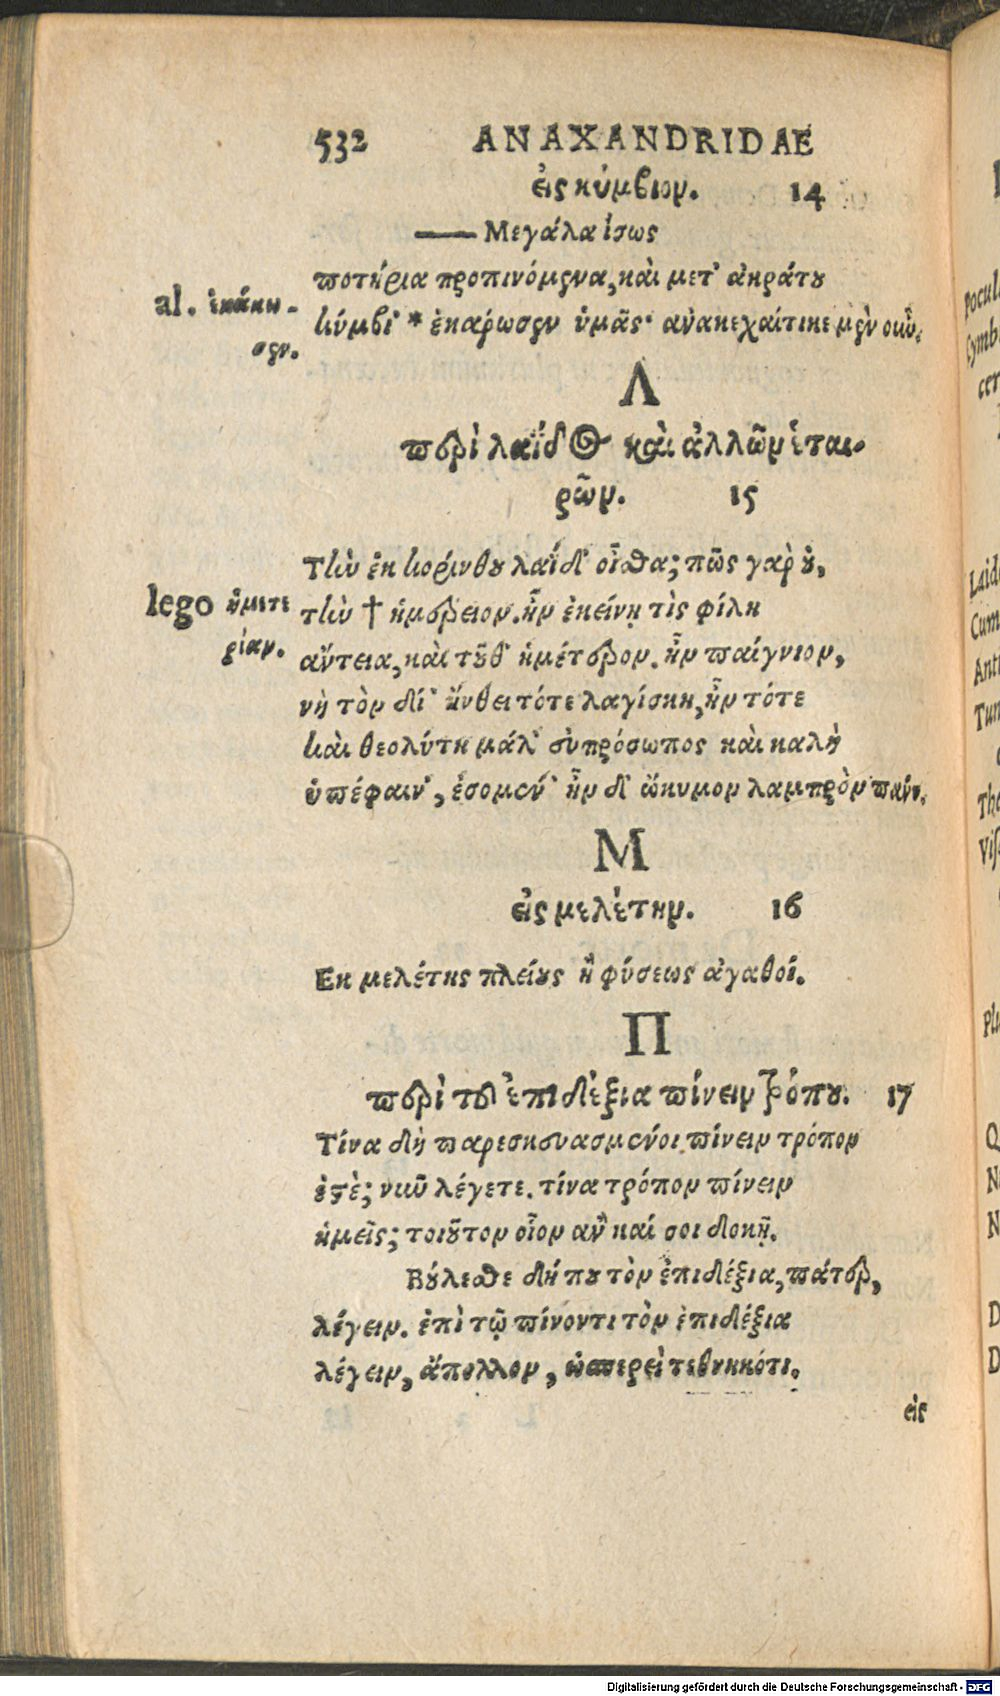 532 ANAXANDRIDAE
εἰς κύμβιον. 14
—— Μεγάλα ἴσως
ποτήρια προπινόμενα, καὶ μετ' ἀκράτου
al. ἐκάκω-
κύμβι' * ἐκάρωσεν ὑμᾶς· ἀνακεχαίτικε μὲν οὖν.
σεν.
Λ
περὶ λαΐδος καὶ ἀλλῶν ἑται-
ρῶν. 15
Τὴν ἐκ κορίνθου λαΐδ' οἶσθα; πῶς γὰρ οὐ,
lego ἡμετε
τὴν † ἡμέρειον. ἦν ἐκείνῃ τὶς φίλη
ρίαν.
αὔτεια, καὶ τοῦθ' ἡμέτερον. ἦν παίγνιον,
νὴ τὸν δί' ἤνθει τότε λαγίσκη, ἦν τότε
καὶ θεολύτη μάλ' εὐπρόσωπος καὶ καλὴ
ὑπέφαιν', ἐσομέν' ἦν δ' ὤκυμον λαμπρὸν πάνυ.
Μ
εἰς μελέτην. 16
Εκ μελέτης πλείους ἢ φύσεως ἀγαθοί.
Π
περὶ τοῦ ἐπιδέξια πίνειν τρόπου. 17
Τίνα δὴ παρεσκευασμένοι πίνειν τρόπον
ἐστὲ; νυῦ λέγετε. τίνα τρόπον πίνειν
ἡμεῖς; τοιοῦτον οἷον ἂν καί σοι δοκῇ.
Βούλεσθε δήπου τὸν ἐπιδέξια, πάτερ,
λέγειν. ἐπὶ τῷ πίνοντι τὸν ἐπιδέξια
λέγειν, ἄπολλον, ὡσπερεὶ τεθνηκότι.
εἰς
Digitalisierung gefördert durch die Deutsche Forschungsgemeinschaft - DFG